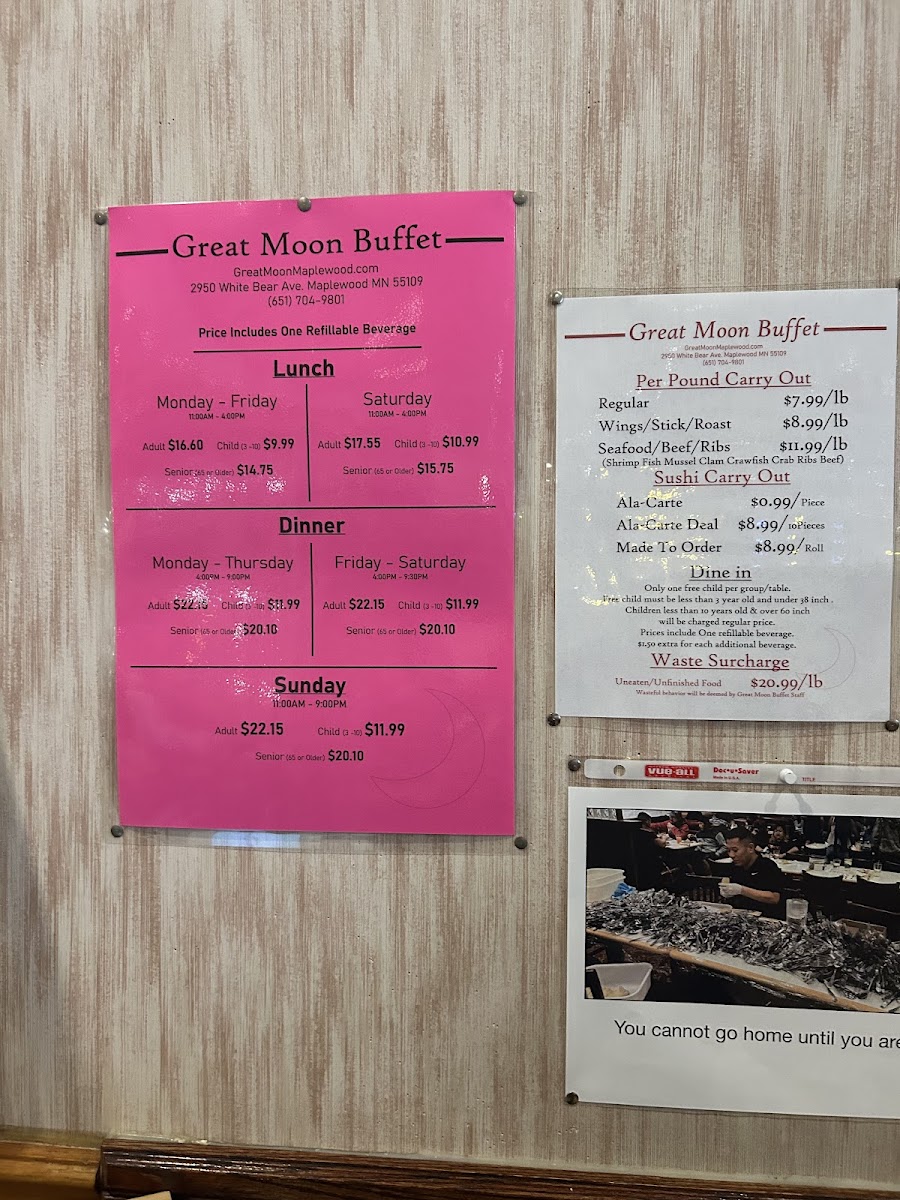 Great Moon Buffet
GreatMoonMaplewood.com
2950 White Bear Ave. Maplewood MN 55109
(651) 704-9801
Price Includes One Refillable Beverage
Lunch
Monday - Friday
11:00AM - 4:00PM
Adult $16.60 Child (3 -10) $9.99
Senior (65 or Older) $14.75
Saturday
11:00AM - 4:00PM
Adult $17.55 Child (3 -10) $10.99
Senior (65 or Older) $15.75
Dinner
Monday - Thursday
4:00PM - 9:00PM
Adult $22.15 Child (3 -10) $11.99
Senior (65 or Older) $20.10
Friday - Saturday
4:00PM - 9:30PM
Adult $22.15 Child (3 -10) $11.99
Senior (65 or Older) $20.10
Sunday
11:00AM - 9:00PM
Adult $22.15 Child (3 -10) $11.99
Senior (65 or Older) $20.10
Great Moon Buffet
GreatMoonMaplewood.com
2950 White Bear Ave. Maplewood MN 55109
(651) 704-9801
Per Pound Carry Out
Regular $7.99/lb
Wings/Stick/Roast $8.99/lb
Seafood/Beef/Ribs $11.99/lb
(Shrimp Fish Mussel Clam Crawfish Crab Ribs Beef)
Sushi Carry Out
Ala-Carte $0.99/ Piece
Ala-Carte Deal $8.99/10Pieces
Made To Order $8.99/Roll
Dine in
Only one free child per group/table.
Free child must be less than 3 year old and under 38 inch .
Children less than 10 years old & over 60 inch
will be charged regular price.
Prices include One refillable beverage.
$1.50 extra for each additional beverage.
Waste Surcharge
Uneaten/Unfinished Food $20.99/lb
Wasteful behavior will be deemed by Great Moon Buffet Staff
VUE-ALL Doc•u•Saver TITLE
Made in U.S.A.
You cannot go home until you are